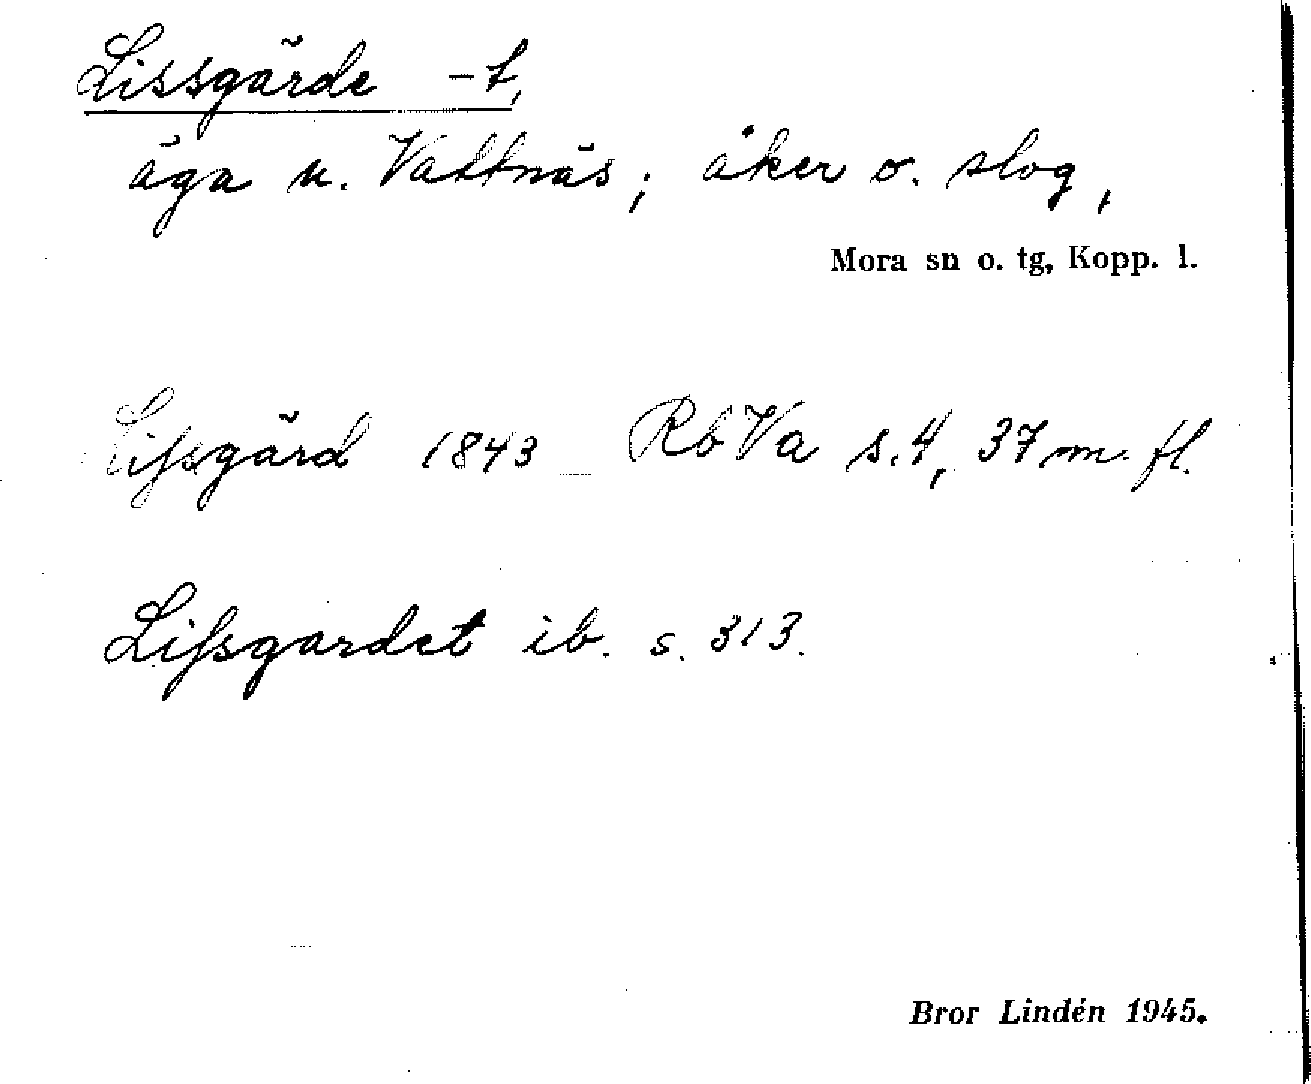 Lissgärde -t,
äga u. Vattnäs; åker o. slog,
Mora sn o. tg, Kopp. l.
Lissgärd 1843 RbVa s. 4, 37 m. fl.
Lissgardet ib. s. 313.
Bror Lindén 1945.